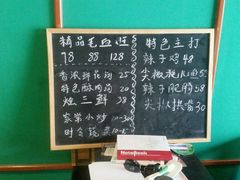 精品毛血旺
78 88 128
香浓鲜花甸 25
特色酥肉 20
烩三鲜 38
家常小炒 10-30
时令蔬菜
特色主打
辣子鸡 48
尖椒
辣子肥肠 58
尖椒拱嘴 30
NoteBook